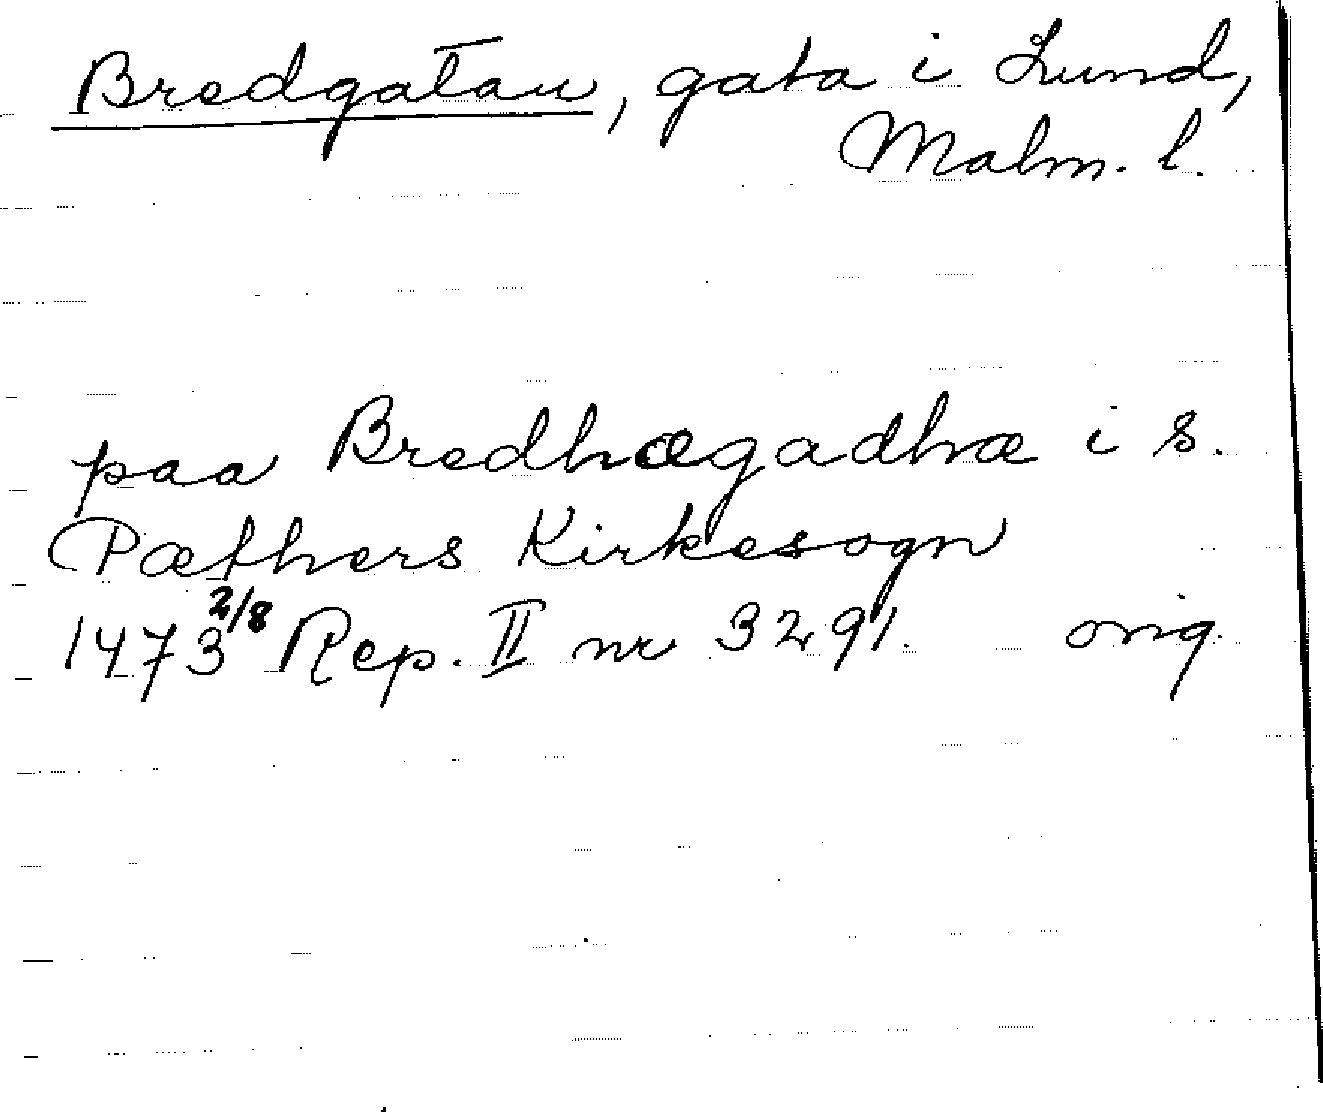 Bredgatan, gata i Lund,
Malm. l.
paa Bredhægadhæ i s.
Pæthers Kirkesogn
1473 2/8 Rep. II nr 3291. orig.